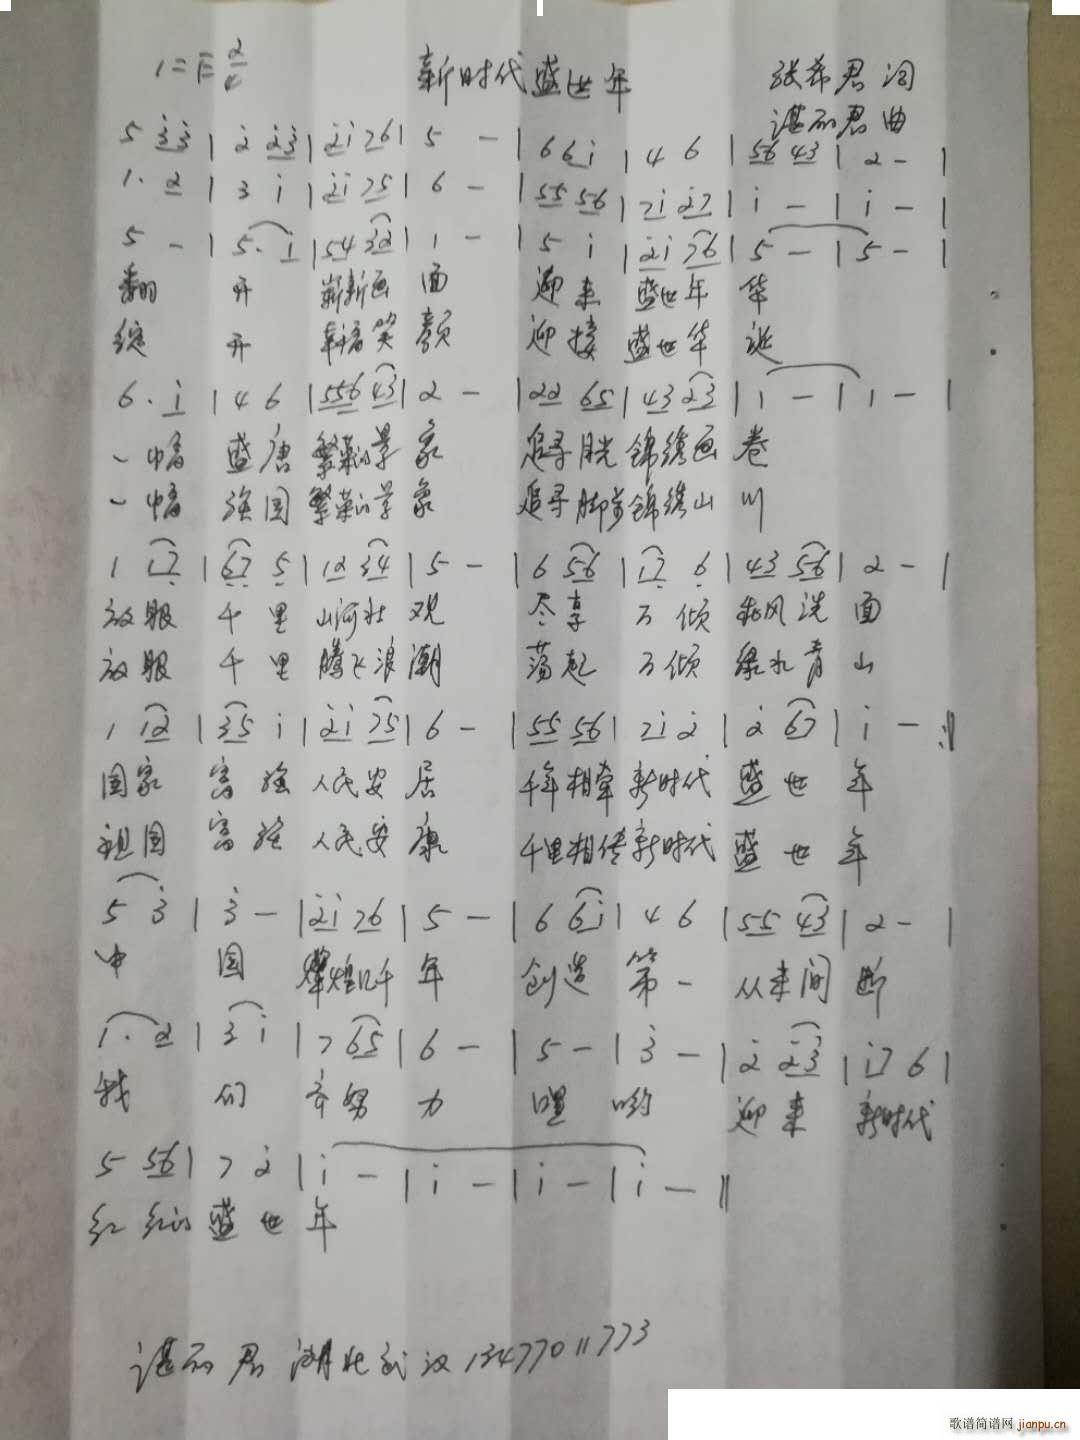 1=E 2/4 新时代盛世年 张希君 词
谌丽君 曲
5 3̇3̇ | 2̇ 2̇3̇ | 2̇1̇ 76 | 5 - | 6 61̇ | 4 6 | 56 43 | 2 - |
1. 2 | 3 1̇ | 2̇1̇ 75 | 6 - | 55 56 | 71̇ 2̇7 | 1̇ - | 1̇ - |
5 - | 5. 1̇ | 54 32 | 1 - | 5 1̇ | 2̇1̇ 76 | 5 - | 5 - |
翻 开 崭新画 面 迎 来 盛世年 华
绽 开 幸福笑 颜 迎 接 盛世华 诞
6. 1̇ | 4 6 | 556 43 | 2 - | 22 65 | 43 23 | 1 - | 1 - |
一 幅 盛 唐 繁荣的景 象 追寻 目光 锦绣画 卷
一 幅 强 国 繁荣的景 象 追寻 脚步 锦绣山 川
1 17̣ | 6̣7̣ 5̣ | 12 34 | 5 - | 6 56 | 17̣ 6̣ | 43 56 | 2 - |
放眼 千 里 山河壮 观 尽享 万 倾 秋风洗 面
放眼 千 里 腾飞浪 潮 荡起 万 倾 绿水青 山
1 12 | 35 1̇ | 2̇1̇ 75 | 6 - | 55 56 | 71̇ 2̇ | 2̇ 67 | 1̇ - :||
国家 富 强 人民安 居 千年相牵 新时代 盛 世 年
祖国 富 强 人民安 康 千里相传 新时代 盛 世 年
5 3̇ | 3̇ - | 2̇1̇ 76 | 5 - | 6 61̇ | 4 6 | 55 43 | 2 - |
中 国 辉煌几千 年 创造 第 一 从未间 断
1. 2 | 3 1̇ | 7 65 | 6 - | 5 - | 3̇ - | 2̇ 2̇3̇ | 1̇7 6 |
我 们 齐努 力 哩 哟 迎 来 新时代
5 56 | 7 2̇ | 1̇ - | 1̇ - | 1̇ - | 1̇ - ||
红 红的 盛 世 年
谌丽君 湖北武汉 13477011773
歌谱简谱网 jianpu.cn